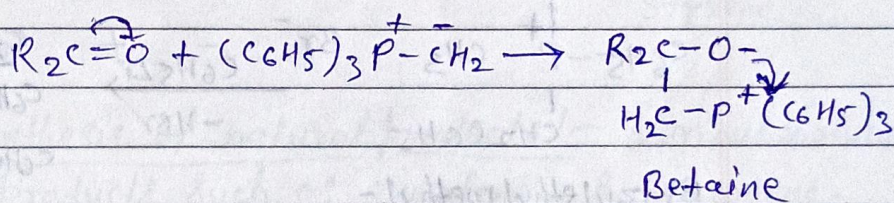 R2C=O + (C6H5)3P⁺-C⁻H2 ⟶ R2C-O-
|
H2C-P⁺(C6H5)3
Betaine